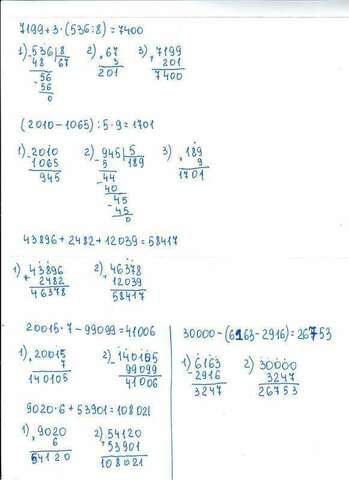 7199+3·(536:8)=7400
1) 536 | 8 2) 67 3) 7199
- 48 | 67 × 3 + 201
56 201 7400
- 56
0
(2010-1065):5·9=1701
1) -2010 2) -945 | 5 3) × 189
1065 5 | 189 9
945 -44 1701
40
-45
45
0
43896+2482+12039=58417
1) +43896 2) +46378
2482 12039
46378 58417
20015·7-99099=41006
1) × 20015 2) -140105
7 99099
140105 41006
9020·6+53901=108021
1) × 9020 2) 54120
6 +53901
54120 108021
30000-(6163-2916)=26753
1) 6163 2) 30000
-2916 3247
3247 26753